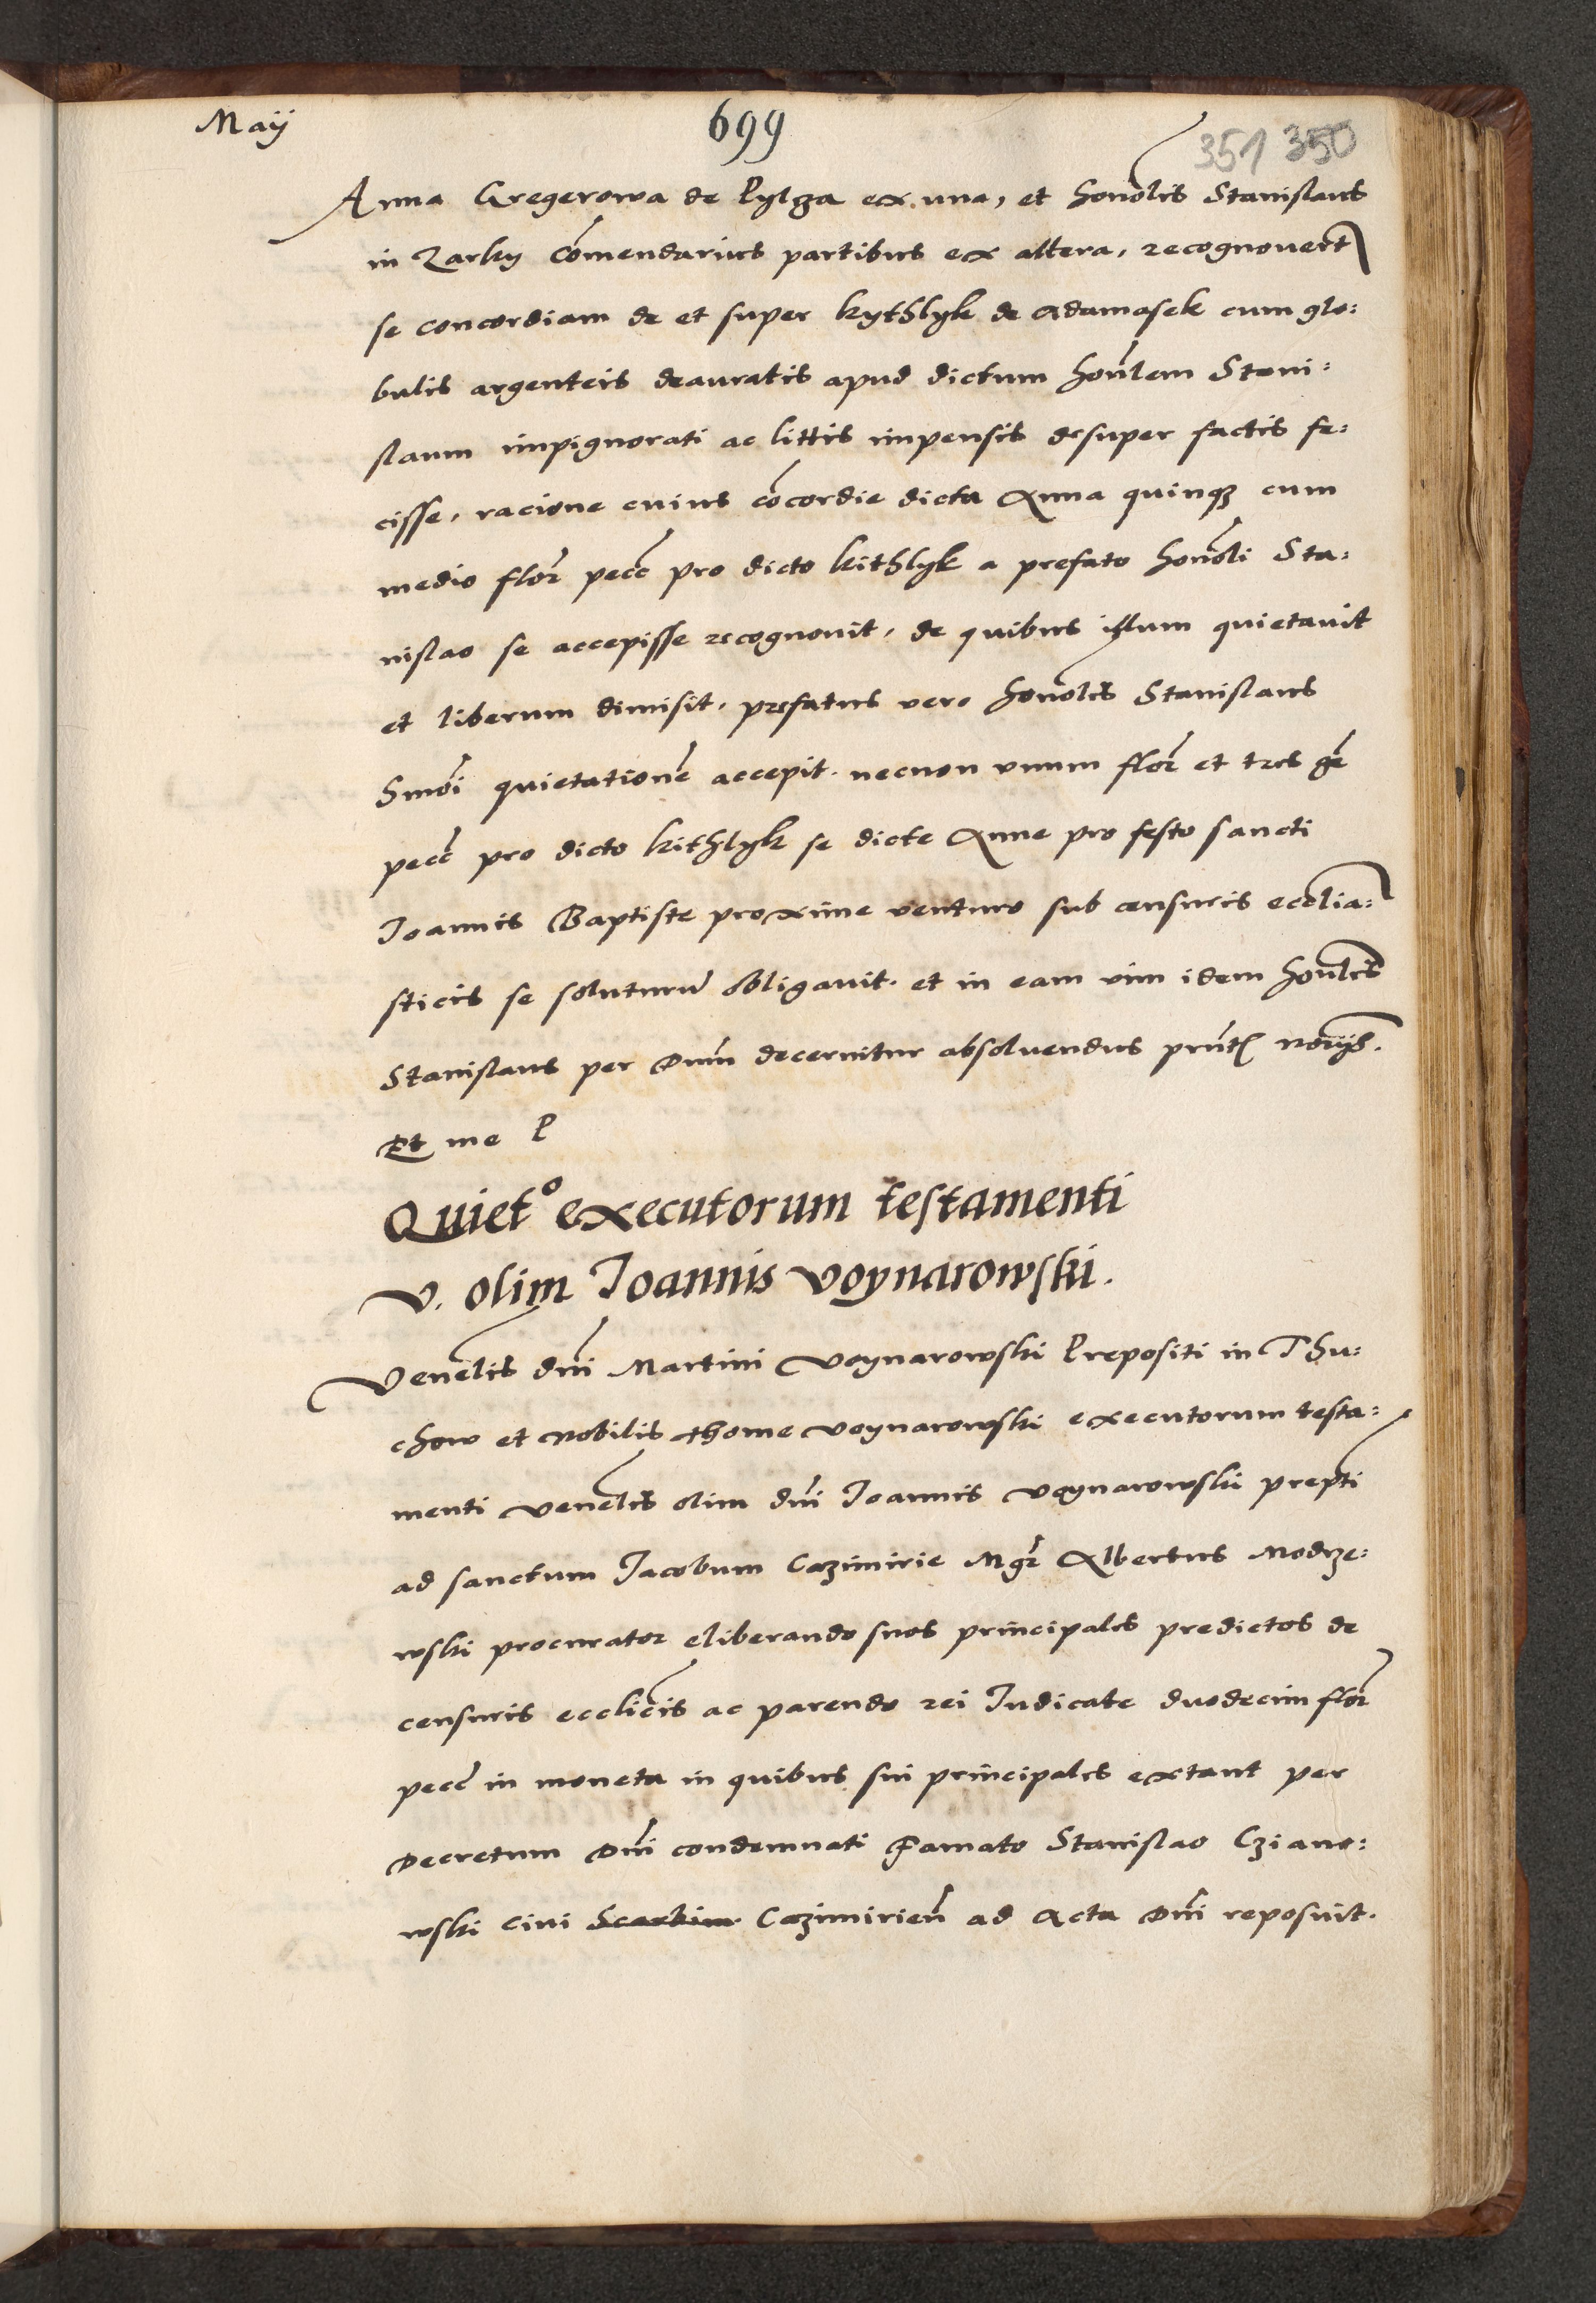 Maÿ
699
351 350
Anna Gregerowa de Pylza ex una, et honolis Stanislaus
in Zarky comendarius partibus ex altera, recognovert
se concordiam de et super kythlyk de Adamasek cum glo:
bulis argenteis deauratis apud dictum honlem Stani:
slaum impignorati ac littis impensis desuper factis fe:
cisse, racione cuius cocordie dicta Anna quinqz cum
medio flor pecc pro dicto kithlyk a prefato honoli Sta:
nislao se accepisse recognovit, de quibus illum quietavit
et liberum dimisit, prefatus vero honolis Stanislaus
hmoi quietatione accepit. necnon unum flor et tres gr
pecc pro dicto kithlyk se dicte Anne pro festo sancti
Joannis Baptiste proxime venturo sub censuris ecclia:
sticis se soluturu obligavit. et in eam vim idem honlis
Stanislaus per Dnm decernitur absolvendus pntf
Et me P
Quiet° executorum testamenti
V. olim Joannis Voynarowski.
Venelis dni Martini Voynarowski Prepositi in Thu:
chow et Nobilis Thome Voynarowski executorum testa:
menti Venelis olim dni Joannis Voynarowski prepti
ad sanctum Jacobum Cazimirie Mgr Albertus Modrze:
wski procurator eliberando suos principales predictos de
censuris ecclicis ac parendo rei Iudicate duodecim flor
pecc in moneta in quibus sui principales extant per
Decretum Dni condemnati Famato Stanislao Cziano:
wski civi Cazimirien ad Acta Dni reposuit.